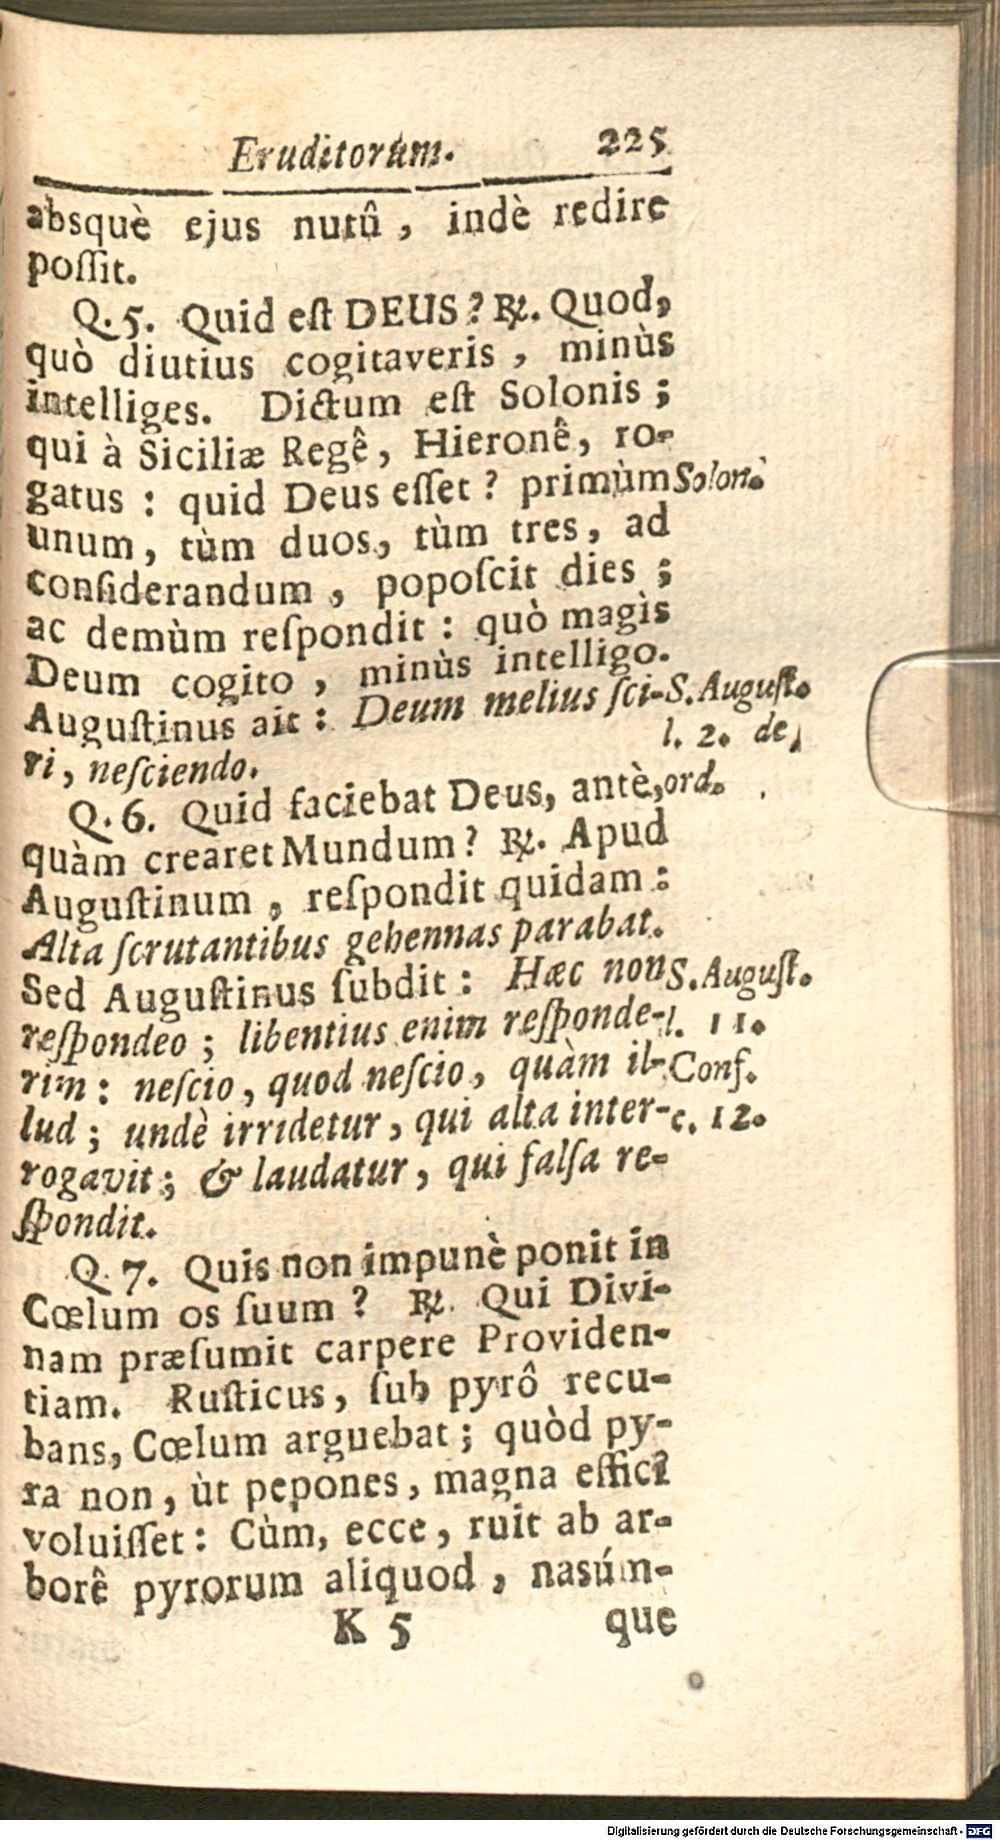 Eruditorum. 225
absquè ejus nutû, indè redire
poſſit.
Q. 5. Quid eſt DEUS? ℞. Quod,
quò diutius cogitaveris, minùs
intelliges. Dictum eſt Solonis;
qui à Siciliæ Regê, Hieronê, ro-
gatus: quid Deus eſſet? primùm Solon.
unum, tùm duos, tùm tres, ad
conſiderandum, popoſcit dies;
ac demùm reſpondit: quò magìs
Deum cogito, minùs intelligo.
Auguſtinus ait: Deum melius ſci- S. Auguſt.
l. 2. de
ri, neſciendo.
Q. 6. Quid faciebat Deus, antè, ord.
quàm crearet Mundum? ℞. Apud
Auguſtinum, reſpondit quidam:
Alta ſcrutantibus gehennas parabat.
Sed Auguſtinus ſubdit: Hæc non S. Auguſt.
reſpondeo; libentius enim reſponde- l. 11.
rim: neſcio, quod neſcio, quàm il- Conf.
lud; undè irridetur, qui alta inter- c. 12.
rogavit; & laudatur, qui falſa re-
ſpondit.
Q. 7. Quis non impunè ponit in
Cœlum os ſuum? ℞. Qui Divi-
nam præſumit carpere Providen-
tiam. Ruſticus, ſub pyrô recu-
bans, Cœlum arguebat; quòd py-
ra non, ùt pepones, magna effici
voluiſſet: Cùm, ecce, ruit ab ar-
borê pyrorum aliquod, nasúm-
K 5 que
Digitalisierung gefördert durch die Deutsche Forschungsgemeinschaft - DFG